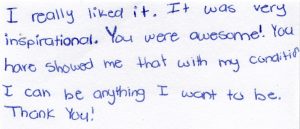 I really liked it. It was very
inspirational. You were awesome! You
have showed me that with my condition
I can be anything I want to be.
Thank You!